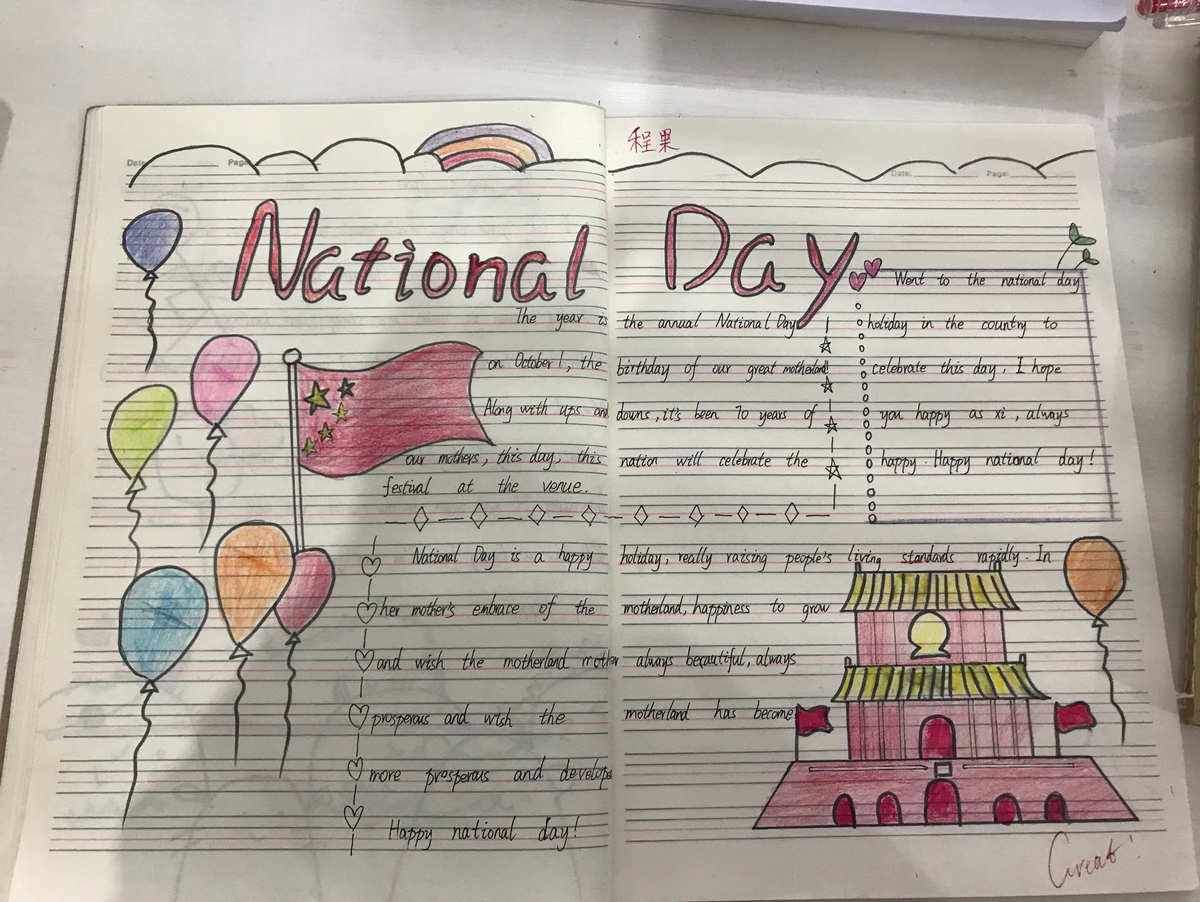 程果
Date: Page:
Date: Page:
National Day
The year is the annual National Day
on October 1, the birthday of our great motherland!
Along with ups and downs, it's been 70 years of
our mothers, this day, this nation will celebrate the
festival at the venue.
Went to the national day
holiday in the country to
celebrate this day. I hope
you happy as xi, always
happy. Happy national day!
National Day is a happy holiday, really raising people's living standards rapidly. In
her mother's embrace of the motherland, happiness to grow
and wish the motherland mother always beautiful, always
prosperous and wish the motherland has become
more prosperous and develope
Happy national day!
Great!